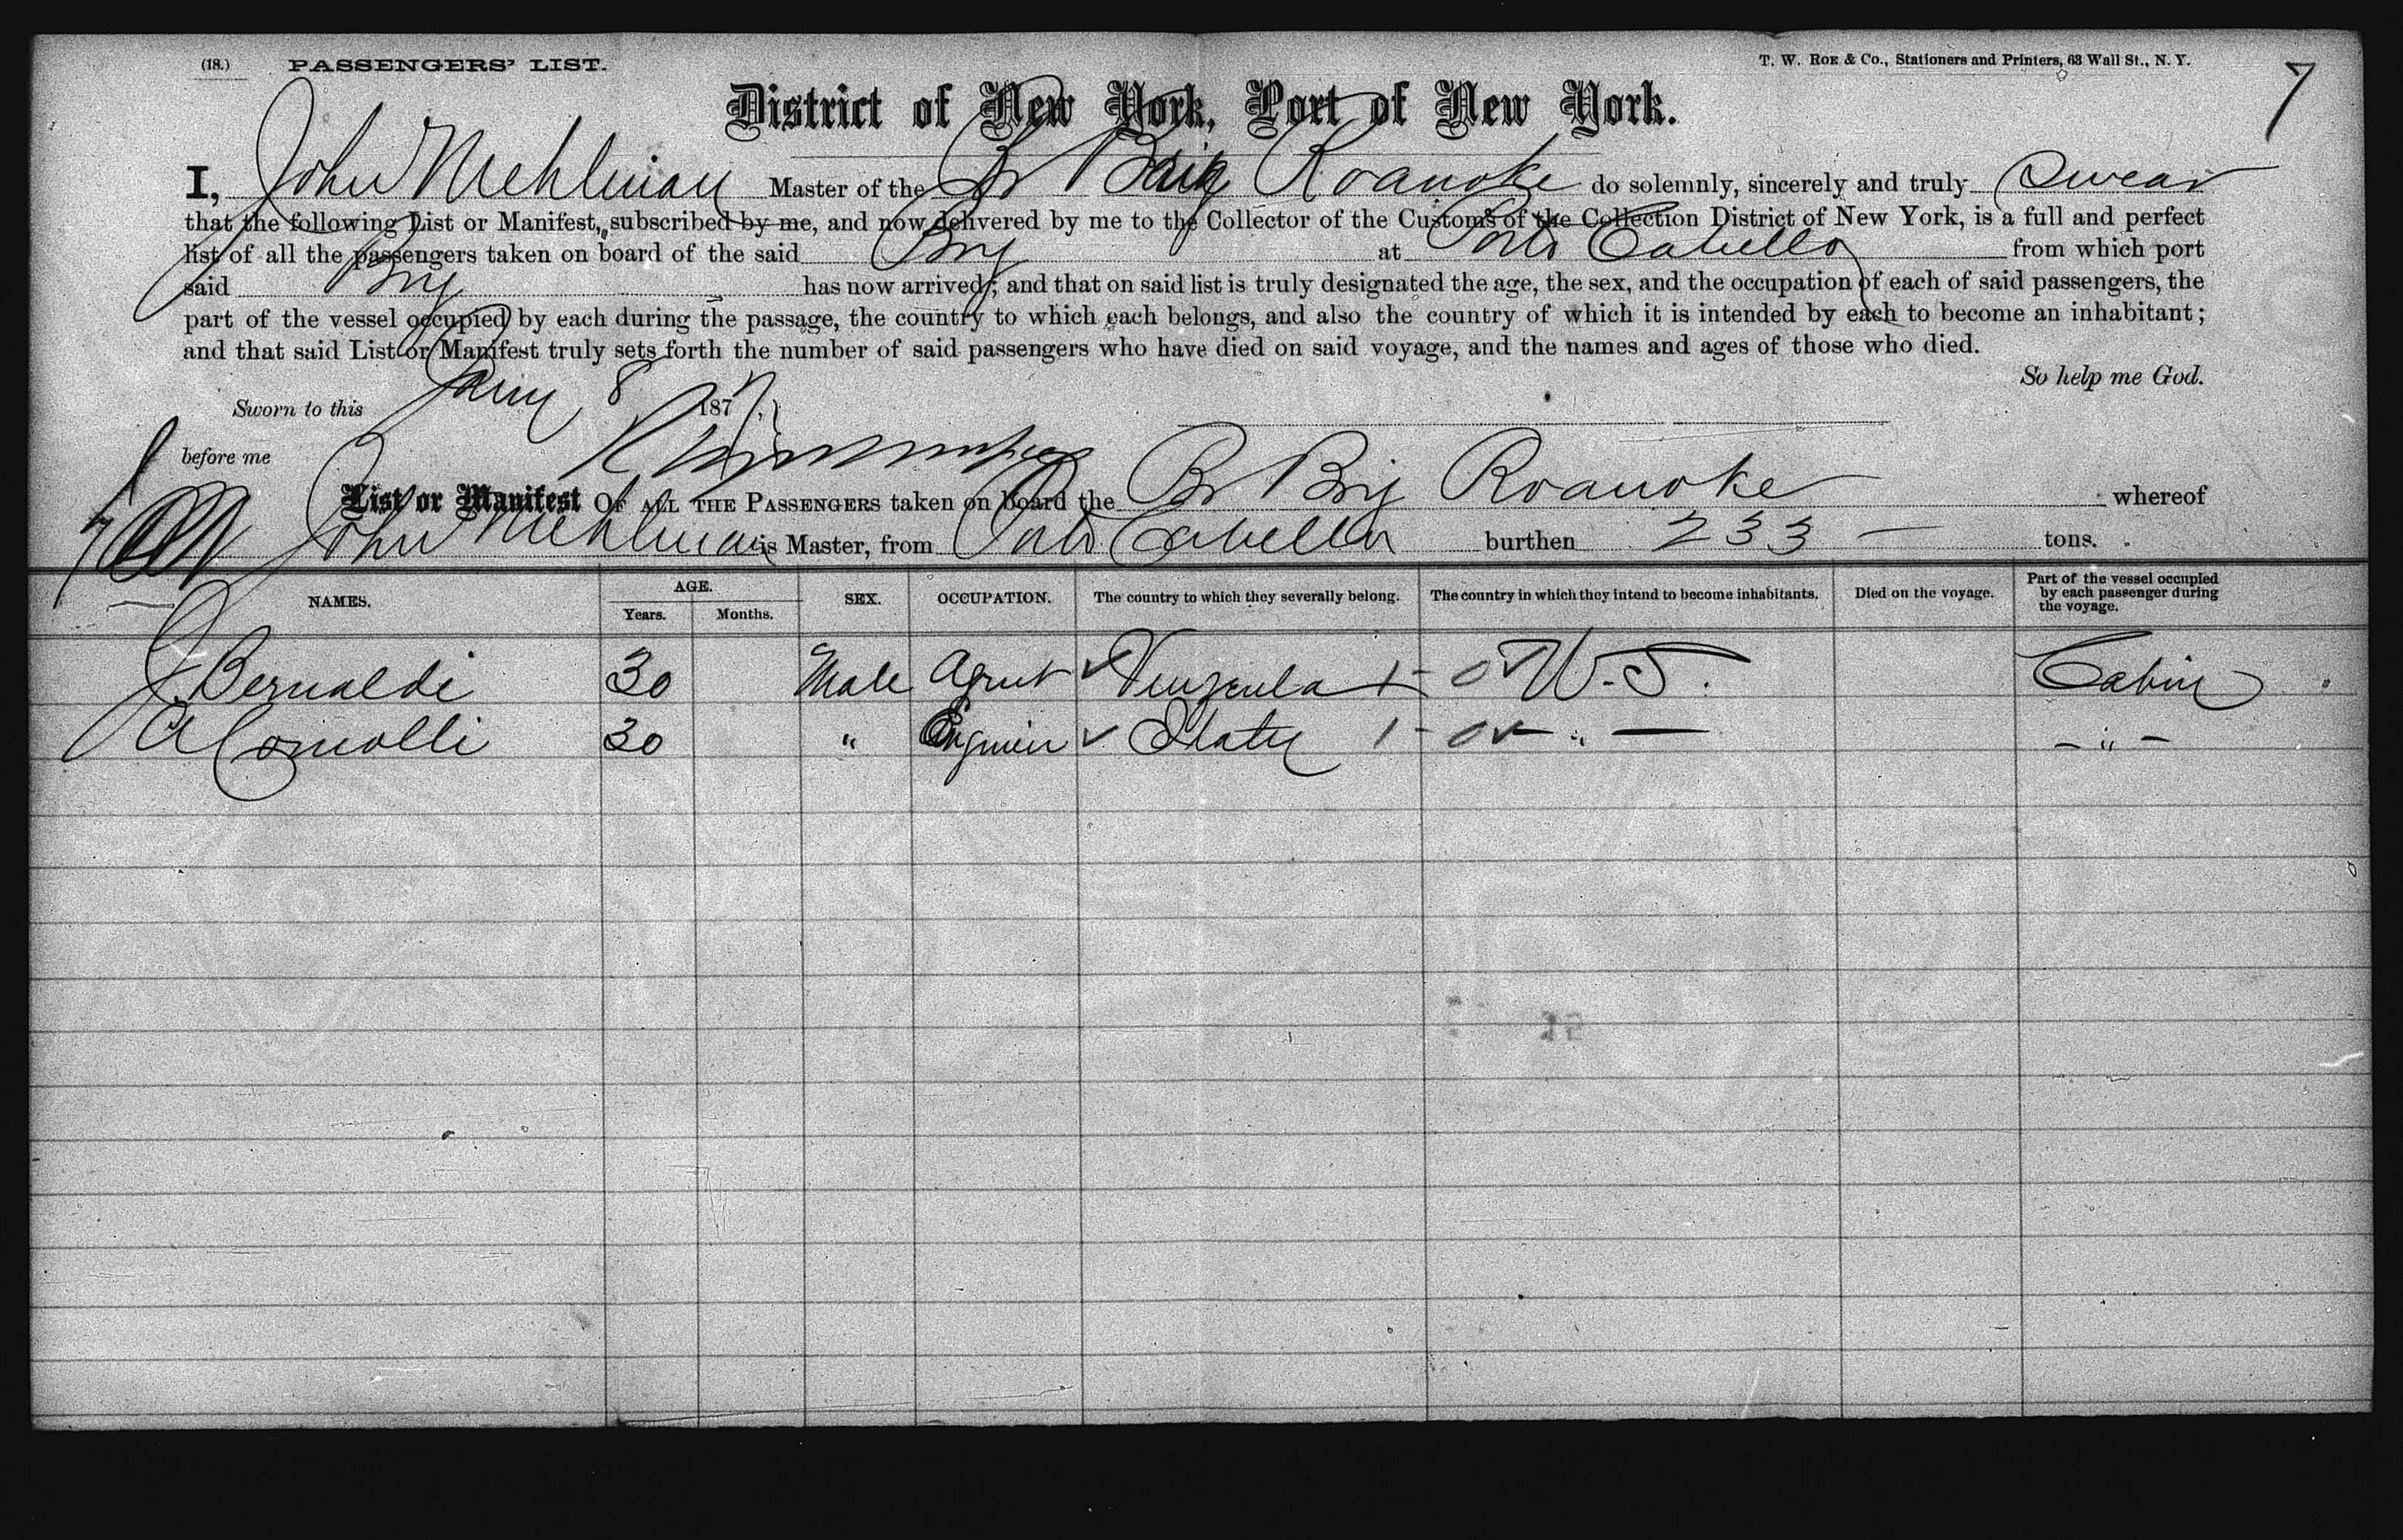 (18.) PASSENGERS' LIST. T. W. ROE & Co., Stationers and Printers, 63 Wall St., N. Y. 7
District of New York, Port of New York.
I, John Mehlman Master of the Br Brig Roanoke do solemnly, sincerely and truly swear
that the following List or Manifest, subscribed by me, and now delivered by me to the Collector of the Customs of the Collection District of New York, is a full and perfect
list of all the passengers taken on board of the said Brig at Porto Cabello from which port
said Brig has now arrived; and that on said list is truly designated the age, the sex, and the occupation of each of said passengers, the
part of the vessel occupied by each during the passage, the country to which each belongs, and also the country of which it is intended by each to become an inhabitant;
and that said List or Manifest truly sets forth the number of said passengers who have died on said voyage, and the names and ages of those who died.
So help me God.
Sworn to this Jany 8 1877
before me
List or Manifest OF ALL THE PASSENGERS taken on board the Br Brig Roanoke whereof
John Mehlman is Master, from Porto Cabello burthen 233 — tons.
NAMES. AGE. Years. Months. SEX. OCCUPATION. The country to which they severally belong. The country in which they intend to become inhabitants. Died on the voyage. Part of the vessel occupied by each passenger during the voyage.
J Bernaldi 30 Male Agent Venzeula 1- 0 W.S. Cabin
A Comolli 30 " Engineer Italy 1- 0 " — - " -